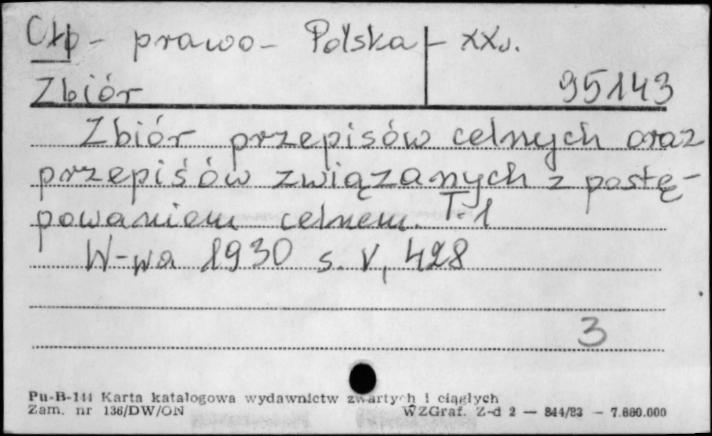 Cło - prawo - Polska - XX w.
Zbiór 95143
Zbiór przepisów celnych oraz
przepisów związanych z postę-
powaniem celnem. T. 1
W-wa 1930 s. V, 428
3
Pu-B-144 Karta katalogowa wydawnictw zwartych i ciągłych
Zam. nr 136/DW/ON WZGraf. Z-d 2 — 844/83 — 7.880.000